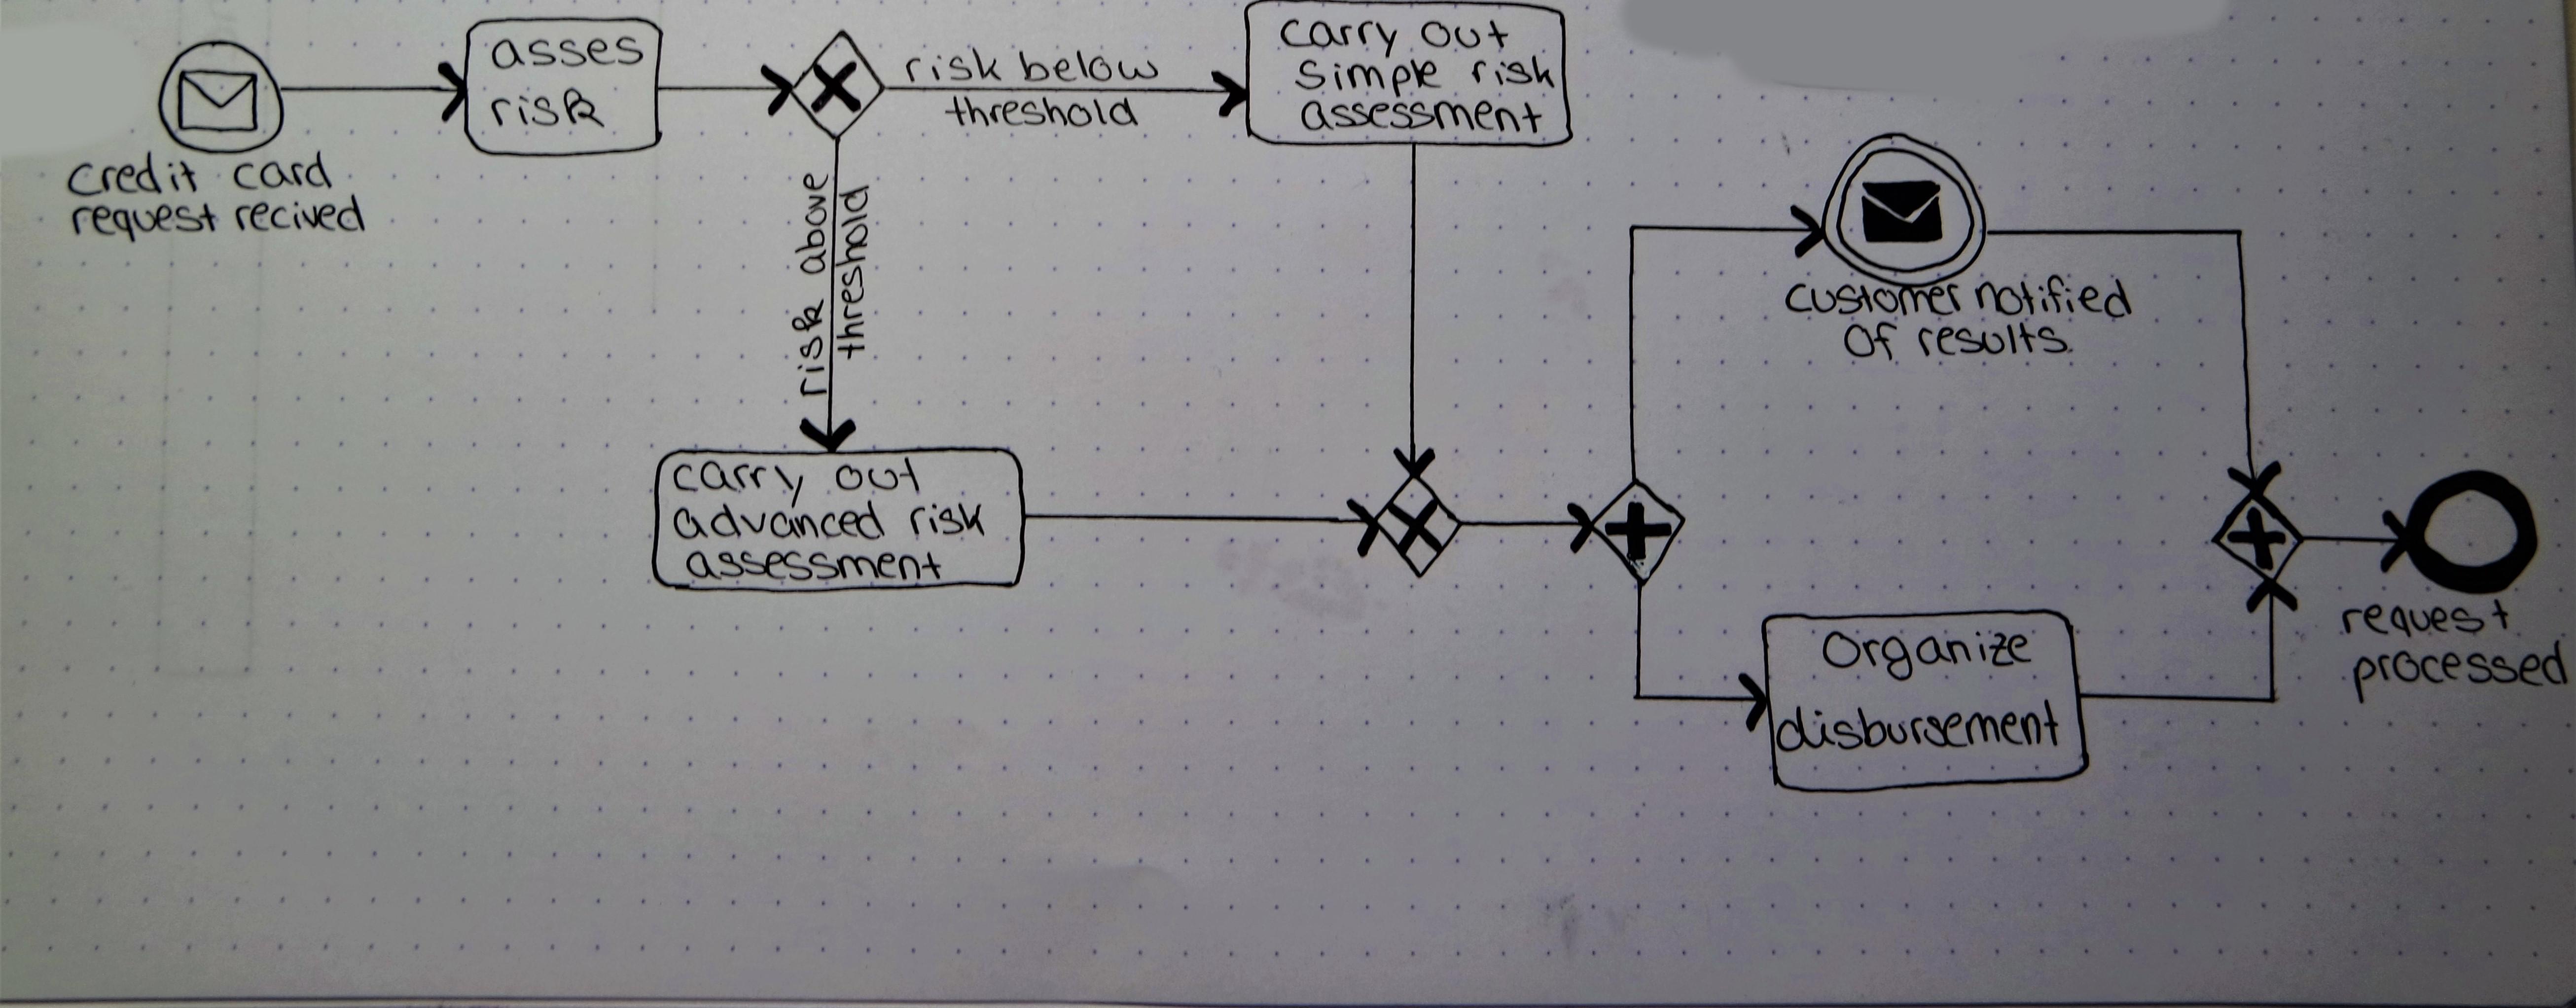 asses
risk
credit card
request recived
risk below
threshold
carry out
simple risk
assessment
risk above
threshold
carry out
advanced risk
assessment
customer notified
of results.
Organize
disbursement
request
processed